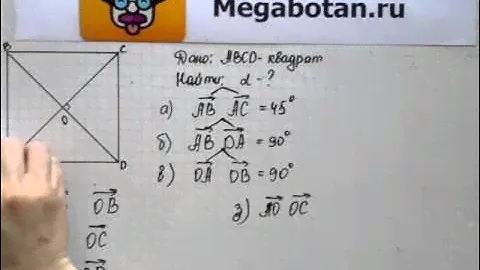 Megabotan.ru
B C
O
D
Дано: ABCD - квадрат
Найти: α - ?
а) AB AC = 45°
б) AB DA = 90°
в) OA OB = 90°
OB
з) AO OC
OC